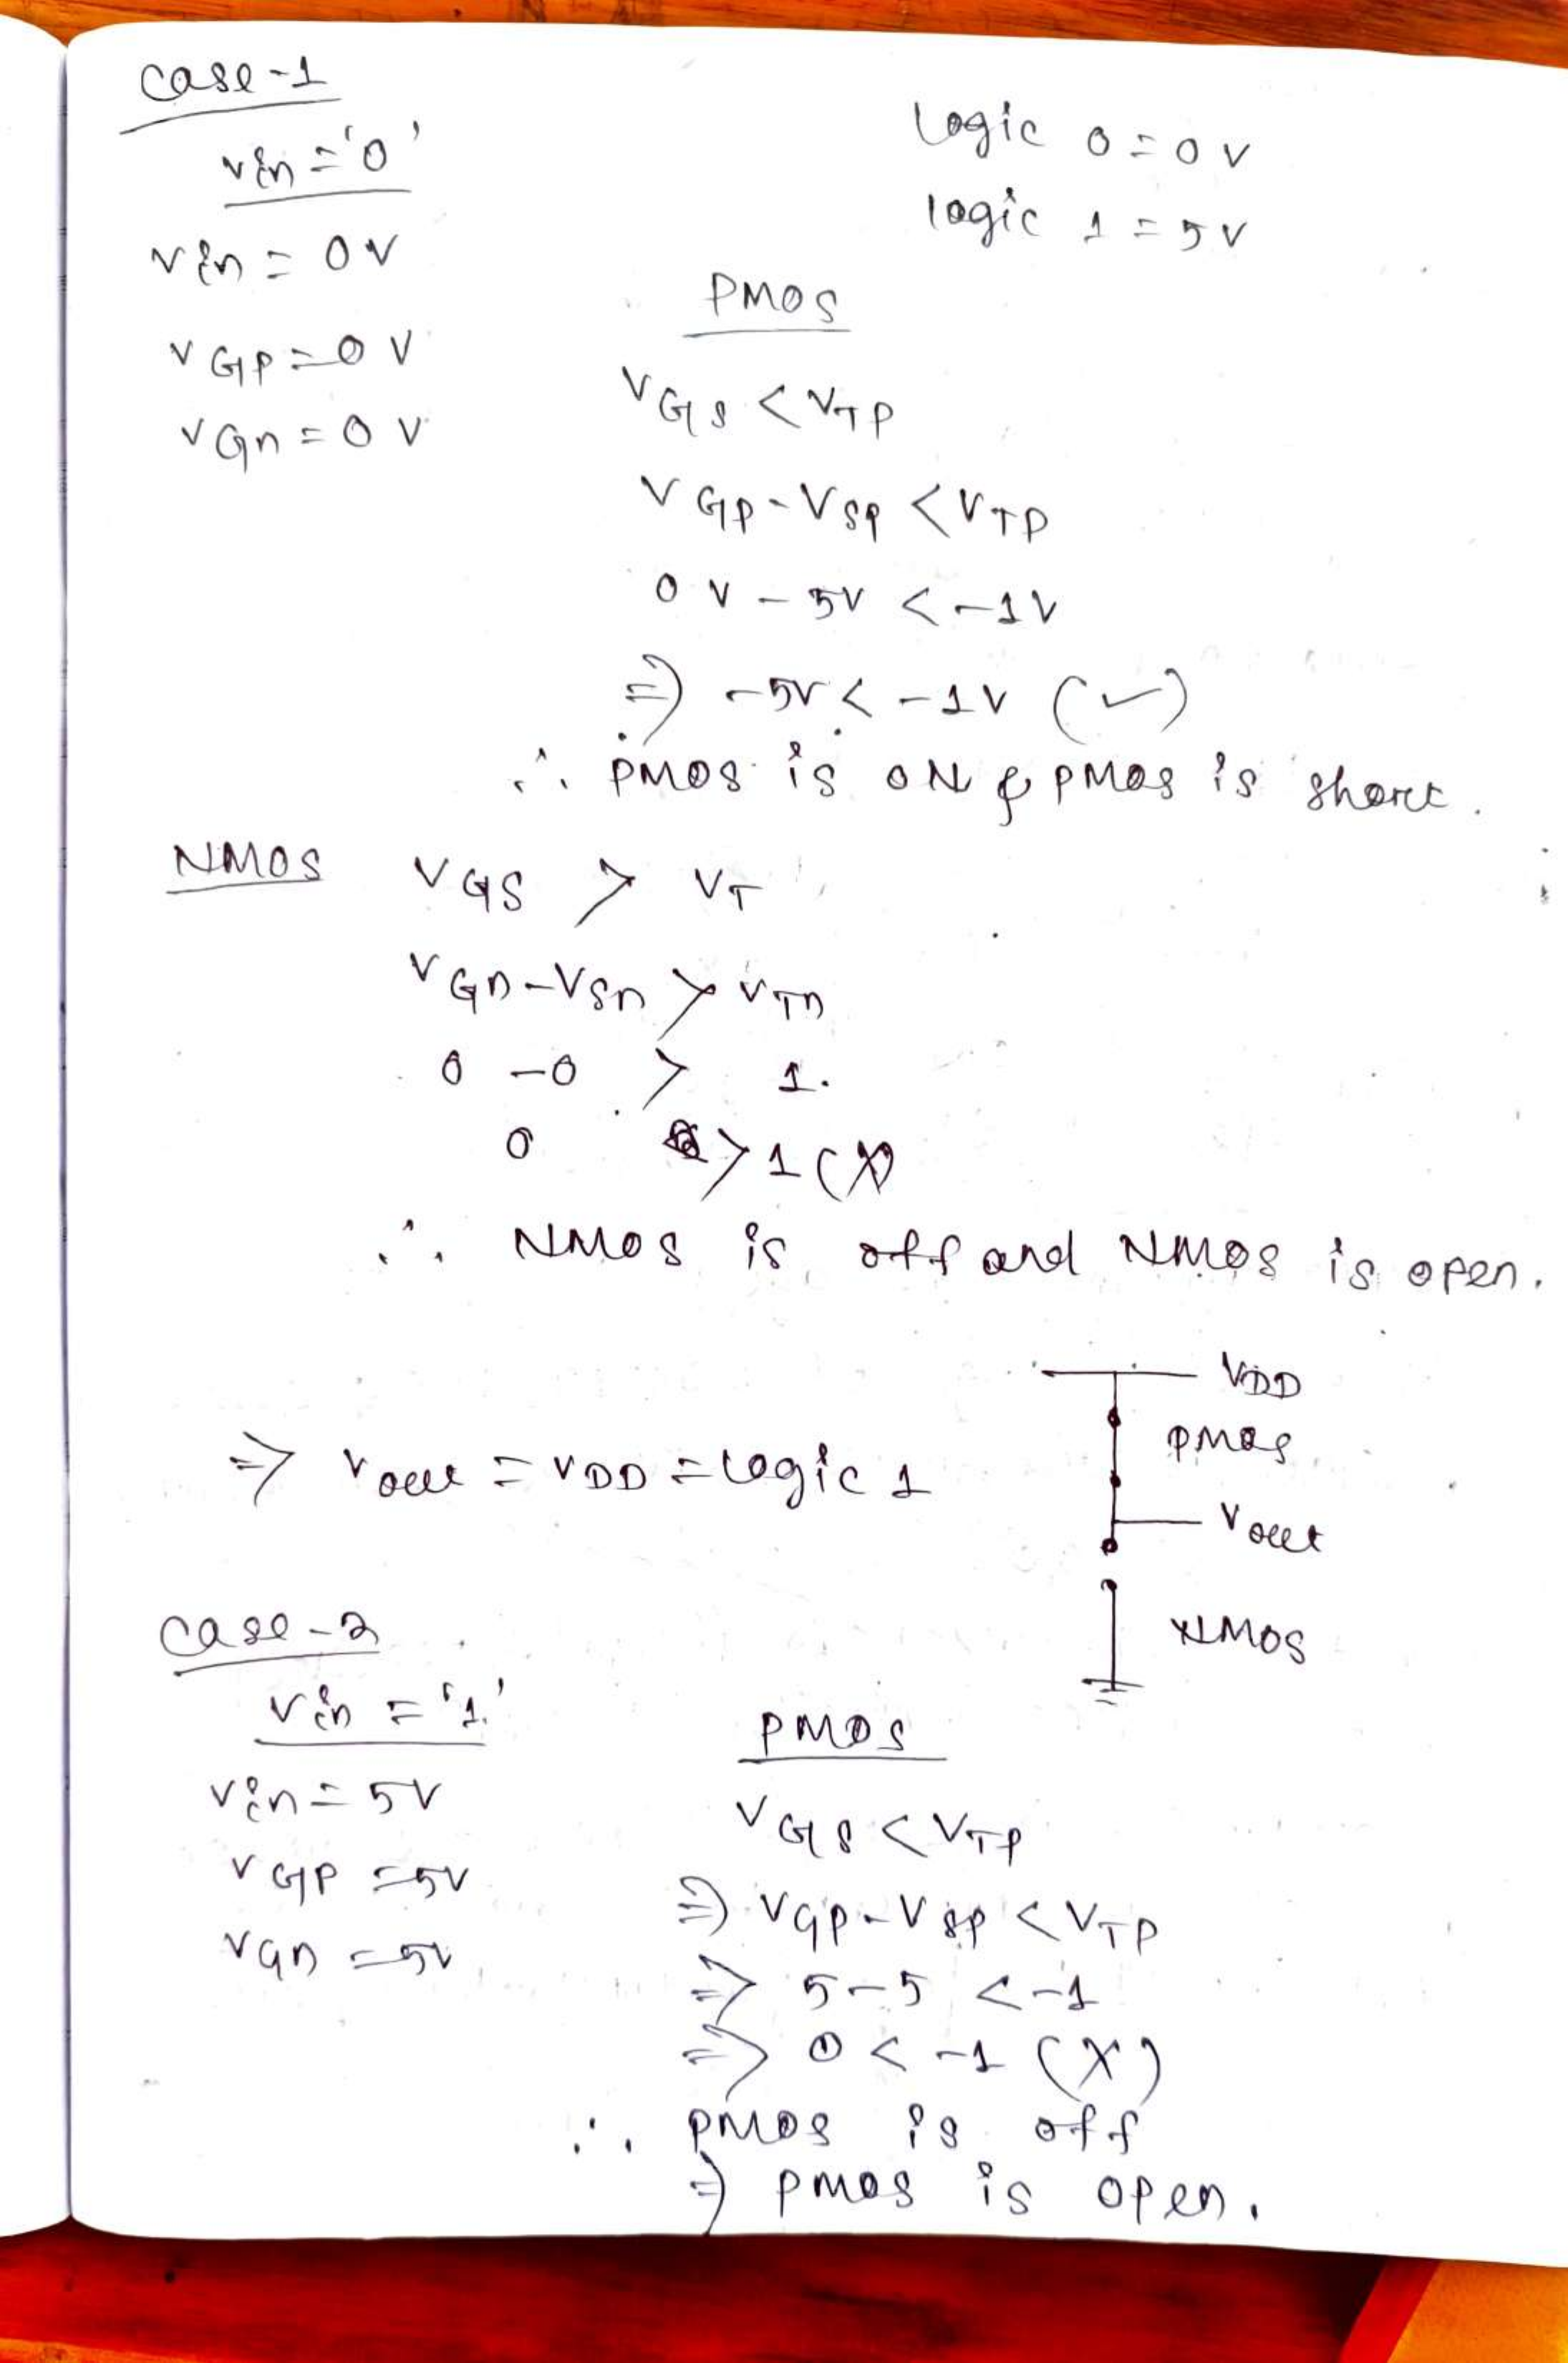 Case-1
Vin = '0'
Logic 0 = 0 V
Logic 1 = 5 V
Vin = 0 V
VGP = 0 V
VGn = 0 V
PMOS
VGS < VTP
VGP - VSP < VTP
0 V - 5V < -1V
⇒ -5V < -1V (✓)
∴ PMOS is ON & PMOS is short.
NMOS VGS > VT
VGn - VSn > VTn
0 - 0 > 1.
0 > 1 (X)
∴ NMOS is off and NMOS is open.
VDD
PMOS
⇒ Vout = VDD = Logic 1
Vout
NMOS
Case-2
Vin = '1'
Vin = 5V
VGP = 5V
VGn = 5V
PMOS
VGS < VTP
⇒ VGP - VSP < VTP
⇒ 5 - 5 < -1
⇒ 0 < -1 (X)
∴ PMOS is off
⇒ PMOS is open.